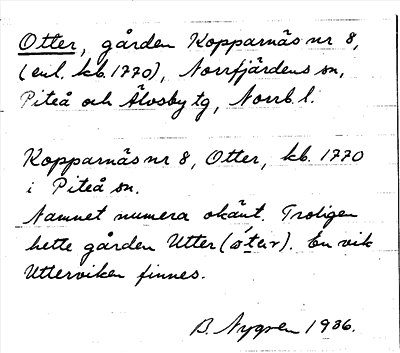 Otter, gården Kopparnäs nr 8,
(enl. kb. 1770), Norrfjärdens sn,
Piteå och Älvsby tg, Norrb. l.
Kopparnäs nr 8, Otter, kb. 1770
i Piteå sn.
Namnet numera okänt. Troligen
hette gården Utter (ó̱ter). En vik
Utterviken finnes.
B. Nygren 1936.